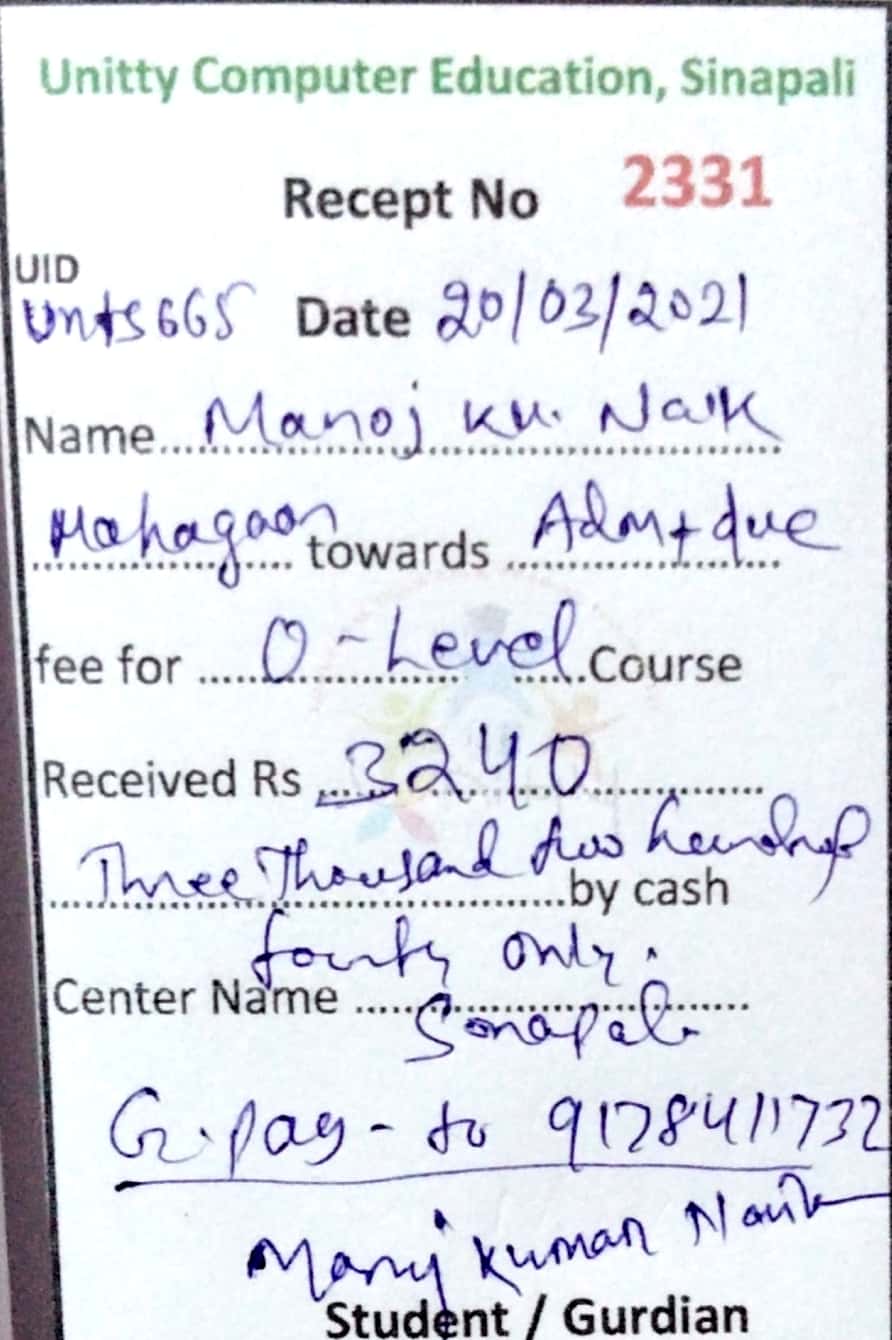 Unitty Computer Education, Sinapali
Recept No 2331
UID
Unts665 Date 20/03/2021
Name Manoj Ku. Naik
Mahagaon towards Adm + due
fee for O-Level Course
Received Rs 3240
Three Thousand two hundred
by cash
fourty only.
Center Name
Sinapali
G.pay - to 9178411732
Manoj Kumar Naik
Student / Gurdian